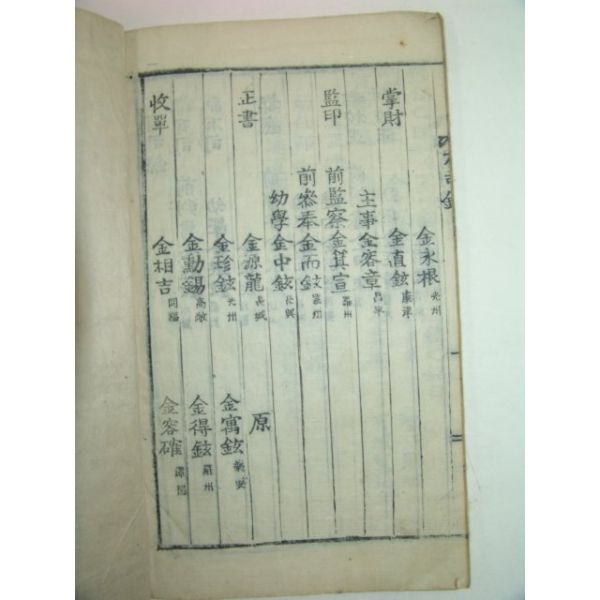 金永根 光州
掌財 金直鉉 康津
主事金容章 昌平
監印 前監察金箕宣 羅州
前參奉金而鉉
幼學金中鉉 長興
正書 金源龍 長城 原
金珍鉉 光州 金寓鉉
金勳錫 高敞 金得鉉 羅州
收單 金相吉 同福 金容確 潭陽